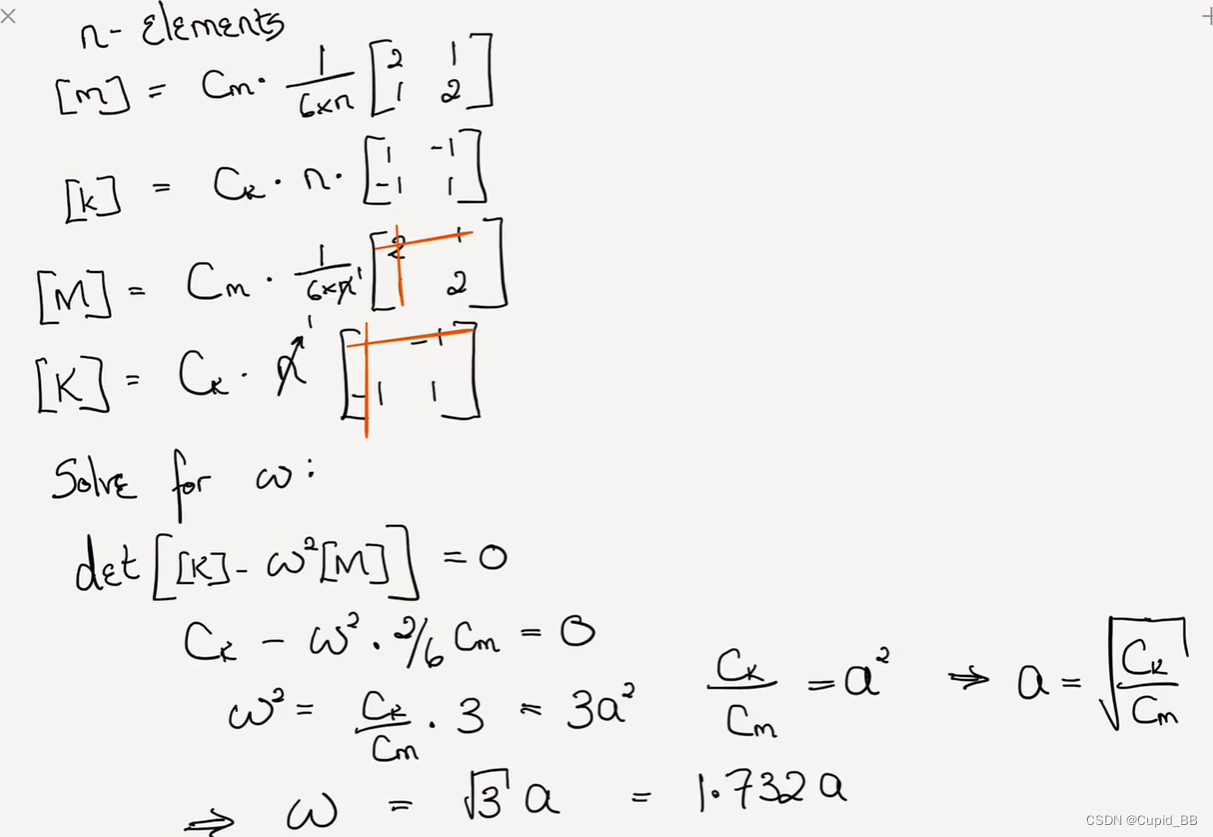 n- Elements
[m] = Cm · 1/(6×n) [2 1; 1 2]
[k] = Ck · n · [1 -1; -1 1]
[M] = Cm · 1/(6×n) 1 [2 1; 2]
[K] = Ck · n 1 [-1; -1 1]
Solve for ω :
det [[K] - ω²[M]] = 0
Ck - ω² · 2/6 Cm = 0
ω² = Ck/Cm · 3 = 3a² Ck/Cm = a² ⇒ a = √(Ck/Cm)
⇒ ω = √3 a = 1.732 a
CSDN @Cupid_BB